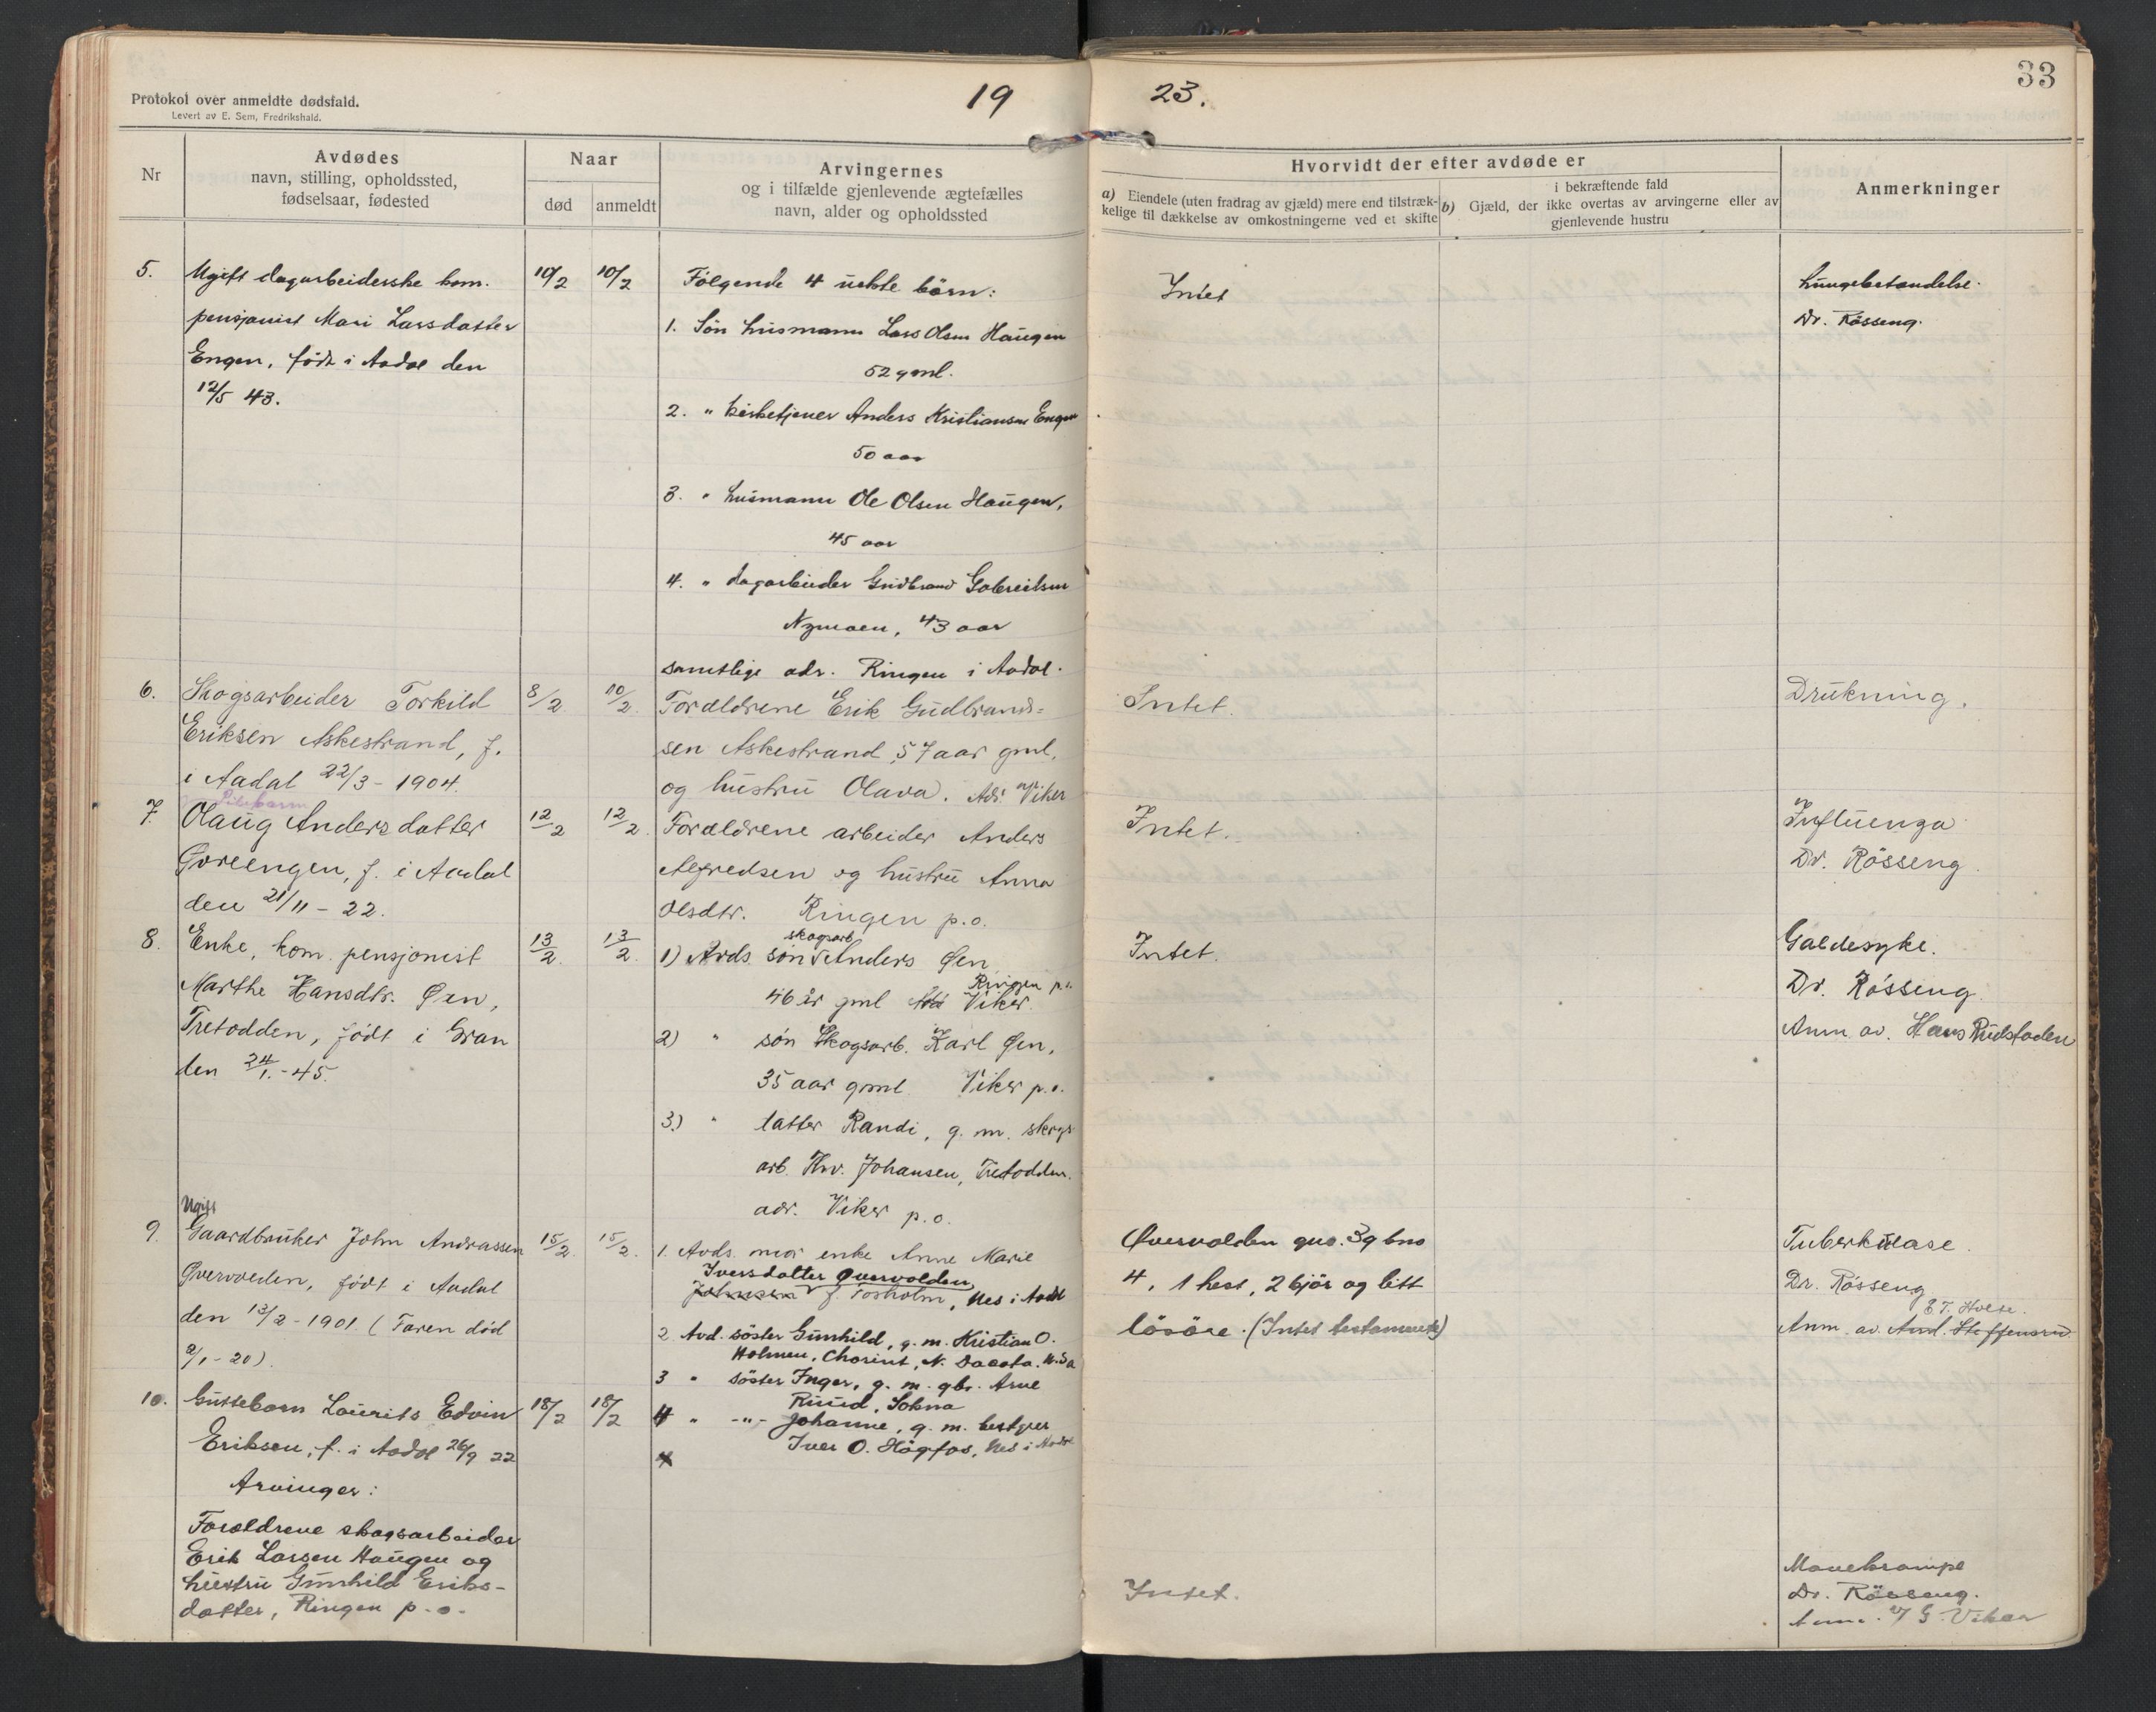 33
19 23.
Protokol over anmeldte dødsfald.
Levert av E. Sem, Fredrikshald.
Nr
Avdødes
navn, stilling, opholdssted,
fødselsaar, fødested
Naar
død
anmeldt
Arvingernes
og i tilfælde gjenlevende ægtefælles
navn, alder og opholdssted
Hvorvidt der efter avdøde er
a) Eiendele (uten fradrag av gjæld) mere end tilstræk-
kelige til dækkelse av omkostningerne ved et skifte
i bekræftende fald
b) Gjæld, der ikke overtas av arvingerne eller av
gjenlevende hustru
Anmerkninger
5.
Ugift dagarbeiderske kom.
pensjonist Mari Larsdatter
Engen, født i Aadal den
12/5 43.
10/2
10/2
Følgende 4 uekte börn:
1. Sön husmann Lars Olsen Haugen
52 gml.
2. " kirketjener Anders Kristiansen Engen
50 aar
3. " husmann Ole Olsen Haugen,
45 aar
4. " dagarbeider Gudbrand Gabrielsen
Nymoen, 43 aar
samtlige adr. Ringen i Aadal.
Intet
Lungebetændelse.
Dr. Rösseng.
6.
Skogsarbeider Torkild
Eriksen Askestrand, f.
i Aadal 22/3 - 1904.
8/2
10/2.
Forældrene Erik Gudbrand=
sen Askestrand, 57 aar gml,
og hustru Olava. Adr. Viker
Intet.
Drukning.
7.
Pikebarn
Olaug Andersdatter
Goreengen, f. i Aadal
den 21/11 - 22.
12/2
12/2.
Forældrene arbeider Anders
Alfredsen og hustru Anna
Olsdtr. Ringen p.o.
Intet.
Influenza
Dr. Rösseng.
8.
Enke, kom. pensjonist
Marthe Hansdtr. Øen,
Tretodden, født i Gran
den 24/1. - 45.
13/2.
13/2.
skogsarb.
1) Avds. sön Anders Øen
Ringen p.o.
46 år gml Adr Viker.
2) " søn Skogsarb. Karl Øen,
35 aar gml Viker p.o.
3.) " datter Randi, g. m. skogs
arb. Thv. Johansen, Tretodden.
adr. Viker p.o.
Intet.
Galdesyke.
Dr. Rösseng.
Anm. av. Hans Rudstaden
9.
Ugift
Gaardbruker John Andrassen
Qvervolden, født i Aadal
den 13/2 - 1901. (Faren död
2/1 - 20).
15/2.
15/2.
1. Avds. mor enke Anne Marie
Iversdatter Qvervolden,
Johnsen f. Fosholm, Nes i Aadal
2. Avd. söster Gunhild, g. m. Kristian O.
Holmen, N. Dacota. U.S.A
3 " söster Inger, g. m. gbr. Arne
Ruud, Sokna
4 " -"- Johanne, g. m. bestyrer
Iver O. Högfos, Nes i Aadal
Qvervolden gno. 39 bno
4, 1 hest, 2 kjör og litt
lösöre. (Intet testamente)
Tuberkulose.
Dr. Rösseng
E T. Hvese.
Anm. av. And. Steffensrud
10.
Guttebarn Laurits Edvin
Eriksen, f. i Aadal 26/9 22
Arvinger:
Forældrene skogsarbeider
Erik Larsen Haugen og
hustru Gunhild Eriks-
datter, Ringen p.o.
18/2
18/2
Intet.
Mavekrampe
Dr. Rösseng.
Anm. G. Viker